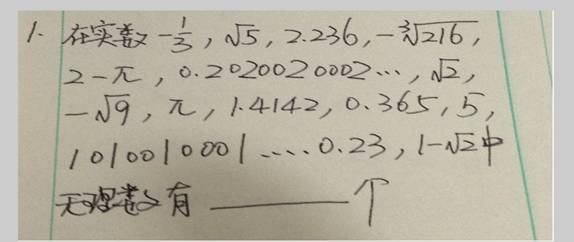 1. 在实数 -1/3, √5, 2.236, -∛216,
2-π, 0.2020020002…, √2,
-√9, π, 1.4142, 0.365, 5,
1010010001……0.23, 1-√2中
无理数有______个